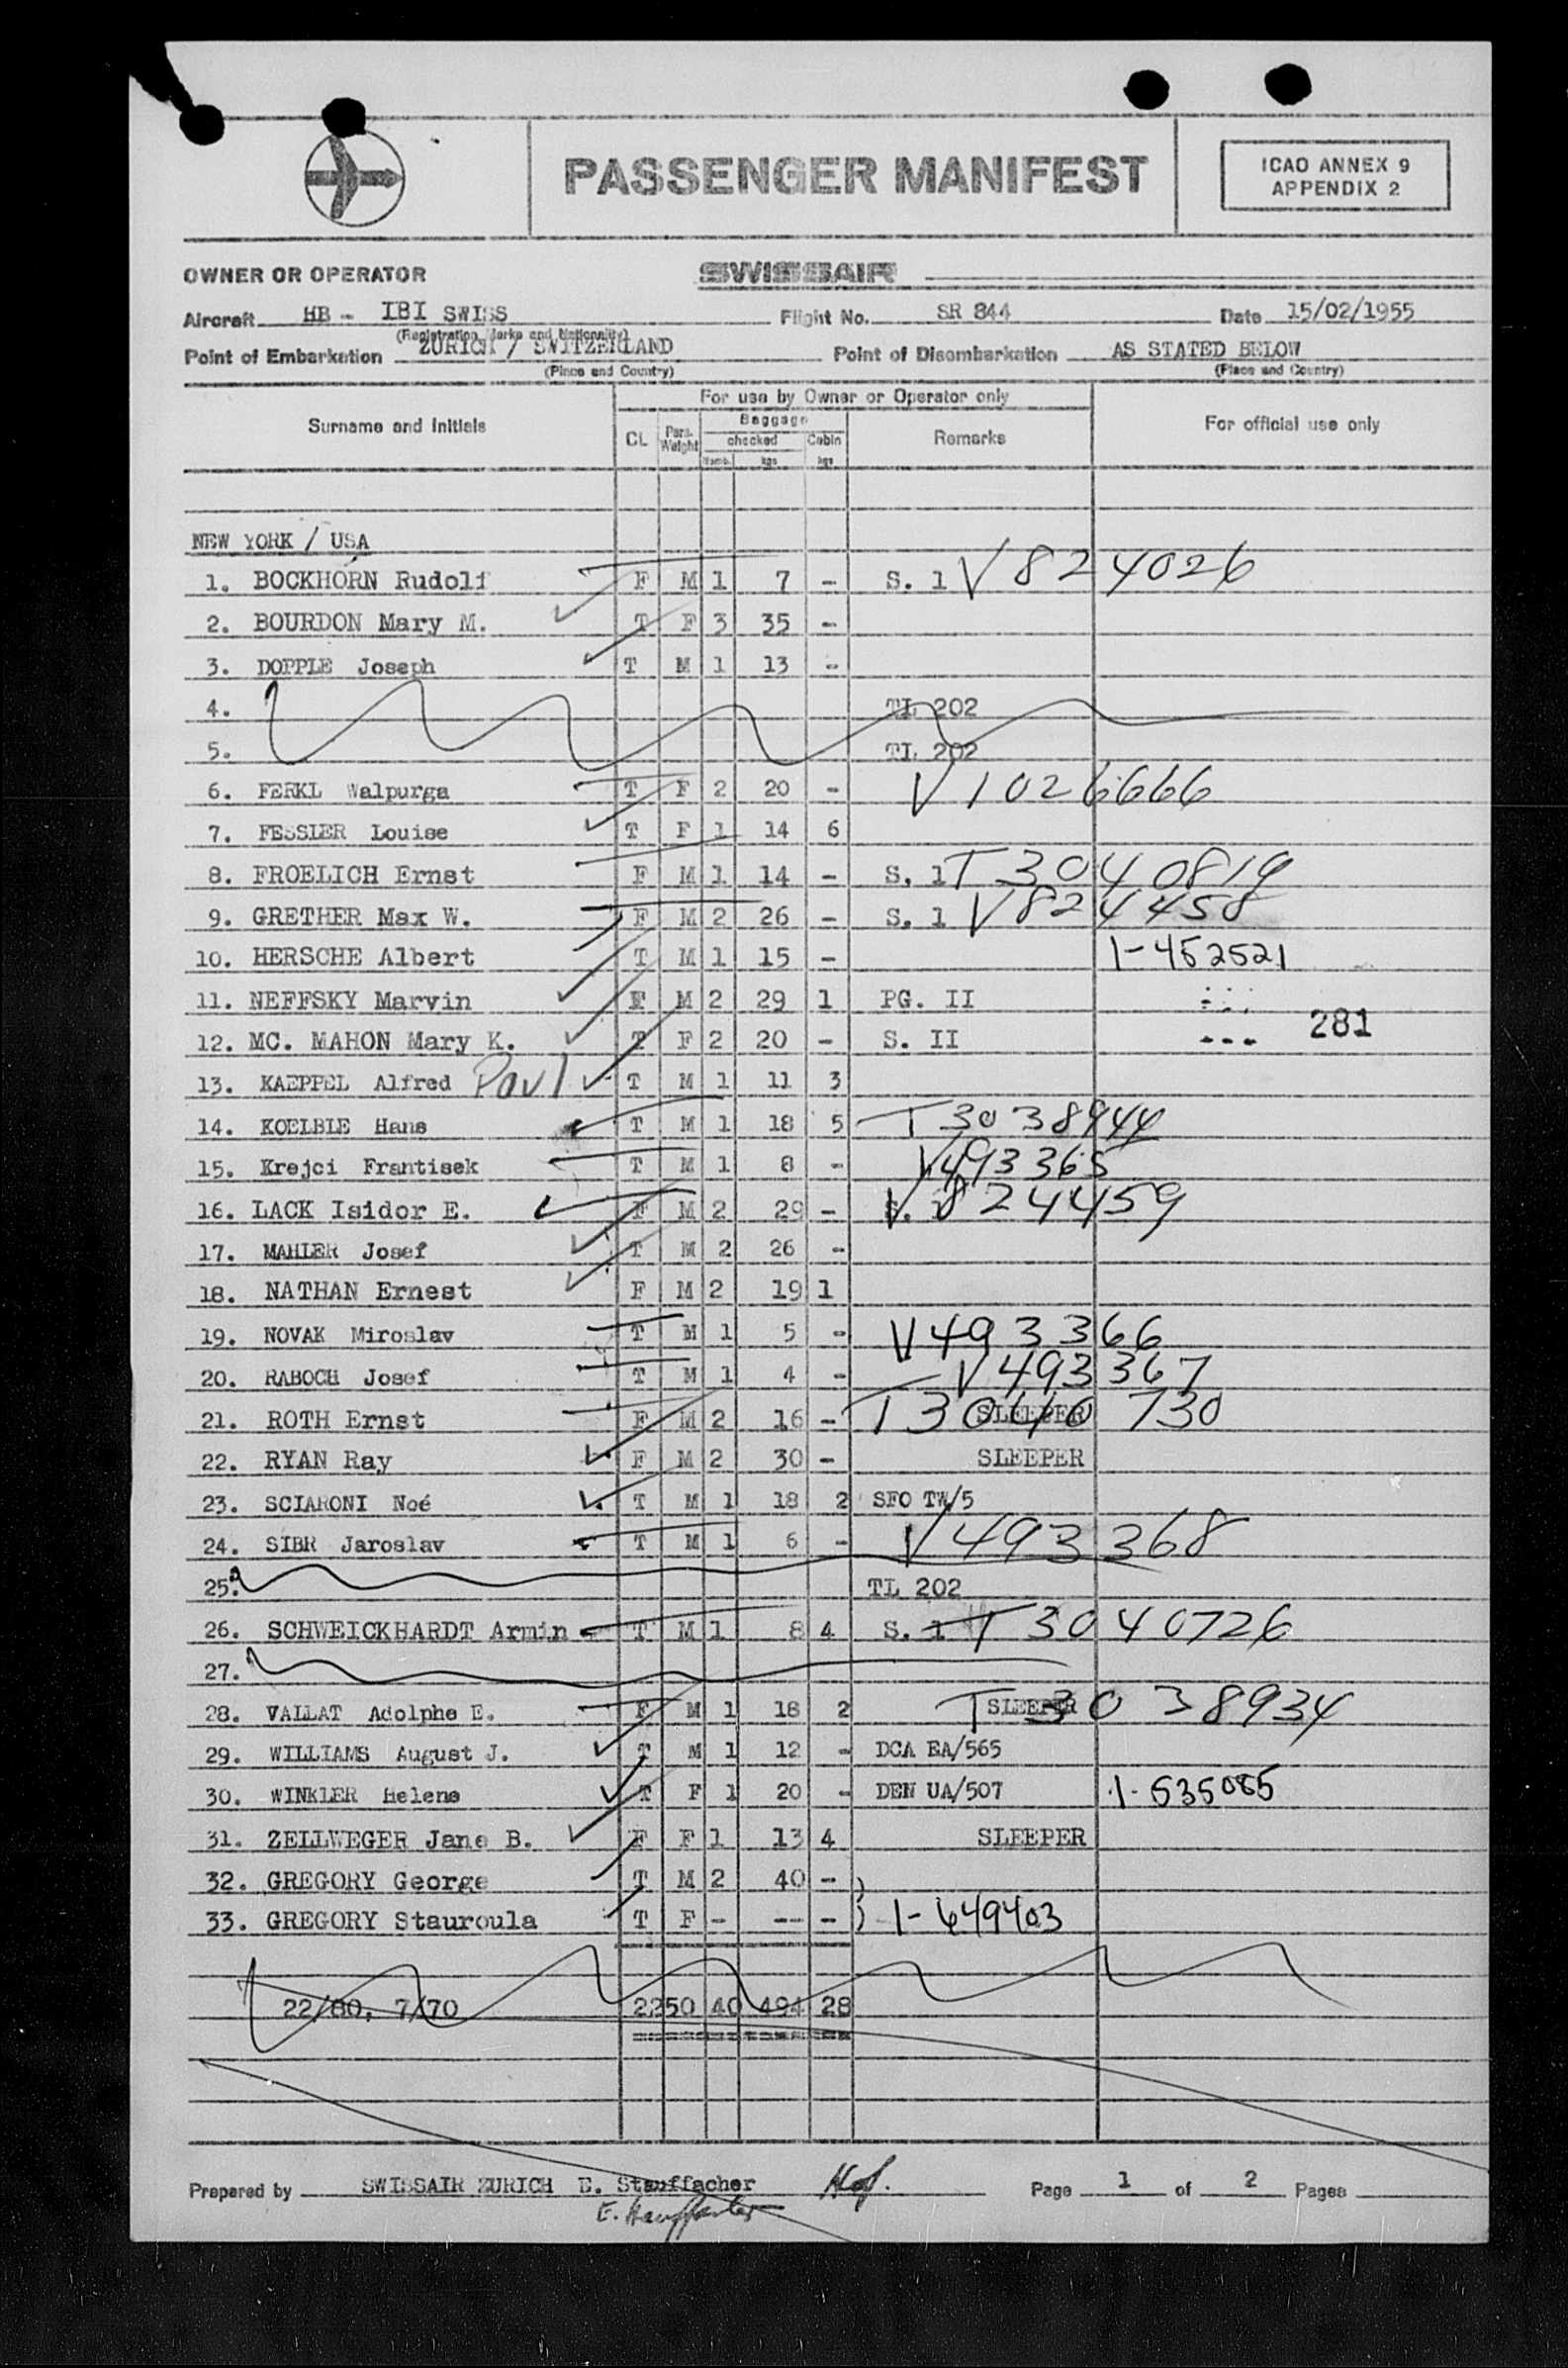 PASSENGER MANIFEST
ICAO ANNEX 9
APPENDIX 2
OWNER OR OPERATOR SWISSAIR
Aircraft HB - IBI SWISS Flight No. SR 844 Date 15/02/1955
(Registration Marks and Nationality)
Point of Embarkation ZURICH / SWITZERLAND Point of Disembarkation AS STATED BELOW
(Place and Country) (Place and Country)
For use by Owner or Operator only
Surname and Initials CL Pers. Weight Baggage checked Numb. kgs Cabin kgs Remarks For official use only
NEW YORK / USA
1. BOCKHORN Rudolf F M 1 7 - S. 1 V 824026
2. BOURDON Mary M. T F 3 35 -
3. DOPPLE Joseph T M 1 13 -
4. TL 202
5. TL 202
6. FERKL Walpurga T F 2 20 - V 1026666
7. FESSLER Louise T F 1 14 6
8. FROELICH Ernst F M 1 14 - S. 1 T 3040819
9. GRETHER Max W. F M 2 26 - S. 1 V 824458
10. HERSCHE Albert T M 1 15 - 1-452521
11. NEFFSKY Marvin F M 2 29 1 PG. II
12. MC. MAHON Mary K. T F 2 20 - S. II 281
13. KAEPPEL Alfred Paul T M 1 11 3
14. KOELBLE Hans T M 1 18 5 T 3038944
15. Krejci Frantisek T M 1 8 - V493365
16. LACK Isidor E. F M 2 29 - S. 1 V 824459
17. MAHLER Josef T M 2 26 -
18. NATHAN Ernest F M 2 19 1
19. NOVAK Miroslav T M 1 5 - V493366
20. RABOCH Josef T M 1 4 - V493367
21. ROTH Ernst F M 2 16 - SLEEPER T3040730
22. RYAN Ray F M 2 30 - SLEEPER
23. SCIARONI Noé T M 1 18 2 SFO TW/5
24. SIBR Jaroslav T M 1 6 - V493368
25. TL 202
26. SCHWEICKHARDT Armin T M 1 8 4 S. 1 T 3040726
27.
28. VALLAT Adolphe E. F M 1 18 2 SLEEPER T 3038934
29. WILLIAMS August J. T M 1 12 - DCA EA/565
30. WINKLER Helene T F 1 20 - DEN UA/507 1-535085
31. ZELLWEGER Jane B. F F 1 13 4 SLEEPER
32. GREGORY George T M 2 40 -
33. GREGORY Stauroula T F - -- - 1-649403
22/80, 7/70 2250 40 494 28
Prepared by SWISSAIR ZURICH E. Stauffacher Page 1 of 2 Pages
E. Stauffacher